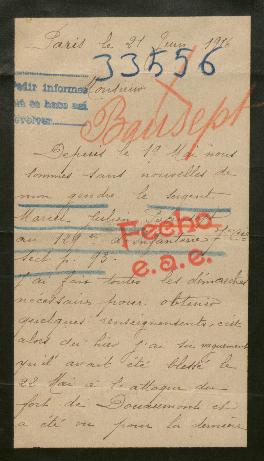 Paris le 21 Juin 1916
33556
Monsieur
Pedir informes
devolver
Depuis le 19 Mai nous
sommes sans nouvelles de
mon gendre le sergent
Marcel Lucien
au 129e d'infanterie 7e Cie
sect p. 93.
Fecho
e.a.e.
j'ai fait toutes les démarches
nécessaires pour obtenir
quelques renseignements, c'est
alors qu'hier j'ai su vaguement
qu'il avait été blessé le
22 Mai à l'attaque du
fort de Douaumont et
a été vu pour la dernière